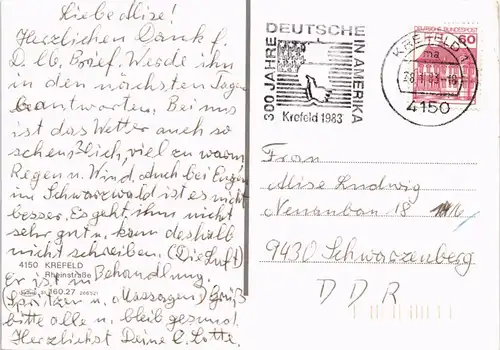 Liebe Mise!
Herzlichen Dank f.
D. lb. Brief. Werde ihn
in den nächsten Tagen
beantworten. Bei uns
ist das Wetter auch so
scheußlich, viel zu warm
Regen u. Wind, auch bei Eugen
im Schwarzwald ist es nicht
besser. Es geht ihm nicht
sehr gut u. kann deshalb
nicht schreiben. (Die Luft)
4150 KREFELD
Rheinstraße
Er ist in Behandlung.
260.27
Spritzen u. Massagen) Grüß
bitte alle u. bleib gesund!
Herzlichst Deine L. Lotte.
300 JAHRE
DEUTSCHE
IN AMERIKA
Krefeld 1983
KREFELD 1
ma
4150
DEUTSCHE BUNDESPOST
60
Frau
Mise Ludwig
Neuanbau 18
9430 Schwarzenberg
DDR